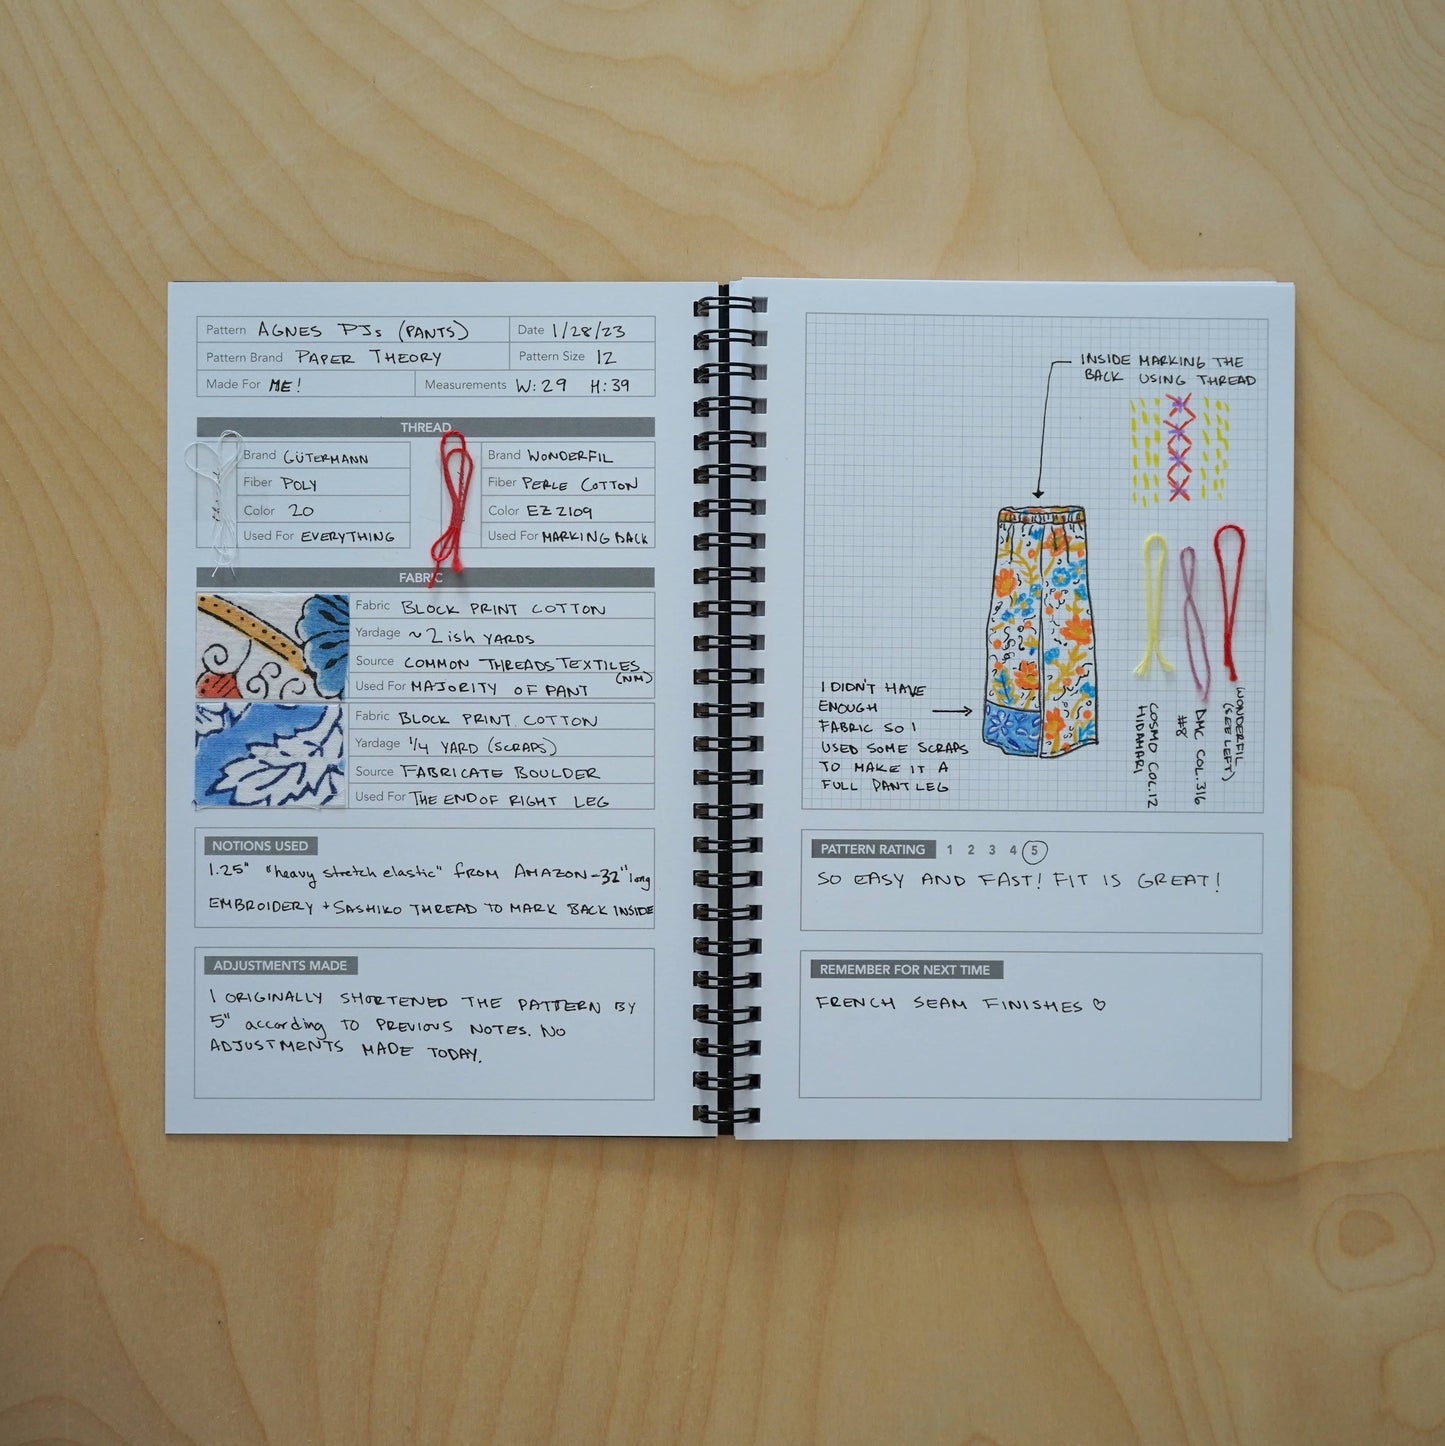 Pattern AGNES PJs (PANTS) Date 1/28/23
Pattern Brand PAPER THEORY Pattern Size 12
Made For ME! Measurements W: 29 H: 39
THREAD
Brand GÜTERMANN
Fiber POLY
Color 20
Used For EVERYTHING
Brand WONDERFIL
Fiber PERLE COTTON
Color EZ 2109
Used For MARKING BACK
FABRIC
Fabric BLOCK PRINT COTTON
Yardage ~ 2 ish YARDS
Source COMMON THREADS TEXTILES
(NM)
Used For MAJORITY OF PANT
Fabric BLOCK PRINT COTTON
Yardage 1/4 YARD (SCRAPS)
Source FABRICATE BOULDER
Used For THE END OF RIGHT LEG
NOTIONS USED
1.25" "heavy stretch elastic" FROM AMAZON - 32" long
EMBROIDERY + SASHIKO THREAD TO MARK BACK INSIDE
ADJUSTMENTS MADE
I ORIGINALLY SHORTENED THE PATTERN BY
5" according TO PREVIOUS NOTES. NO
ADJUSTMENTS MADE TODAY.
INSIDE MARKING THE
BACK USING THREAD
I DIDN'T HAVE
ENOUGH
FABRIC SO I
USED SOME SCRAPS
TO MAKE IT A
FULL PANT LEG
COSMO COL.12
HIDAMARI
DMC COL.316
#8
WONDERFIL
(SEE LEFT)
PATTERN RATING 1 2 3 4 5
SO EASY AND FAST! FIT IS GREAT!
REMEMBER FOR NEXT TIME
FRENCH SEAM FINISHES ♡